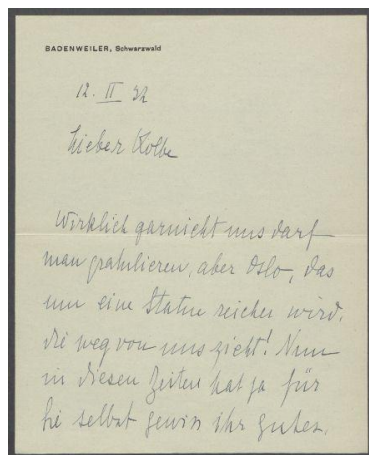 BADENWEILER, Schwarzwald
12. II 32
Lieber Kolbe
Wirklich garnicht uns darf
man gratulieren, aber Oslo, das
um eine Statue reicher wird,
die weg von uns zieht! Nun
in diesen Zeiten hat ja für
Sie selbst gewiss ihr gutes.